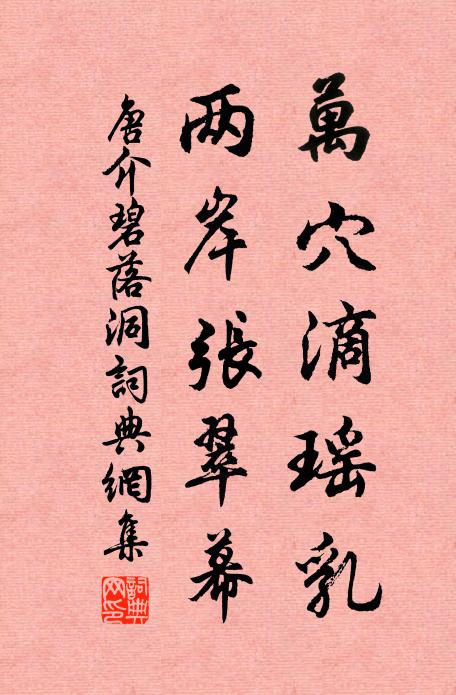 萬穴滴瑶乳
两岸張翠幕
唐介碧落洞詞典網集
詞典網印